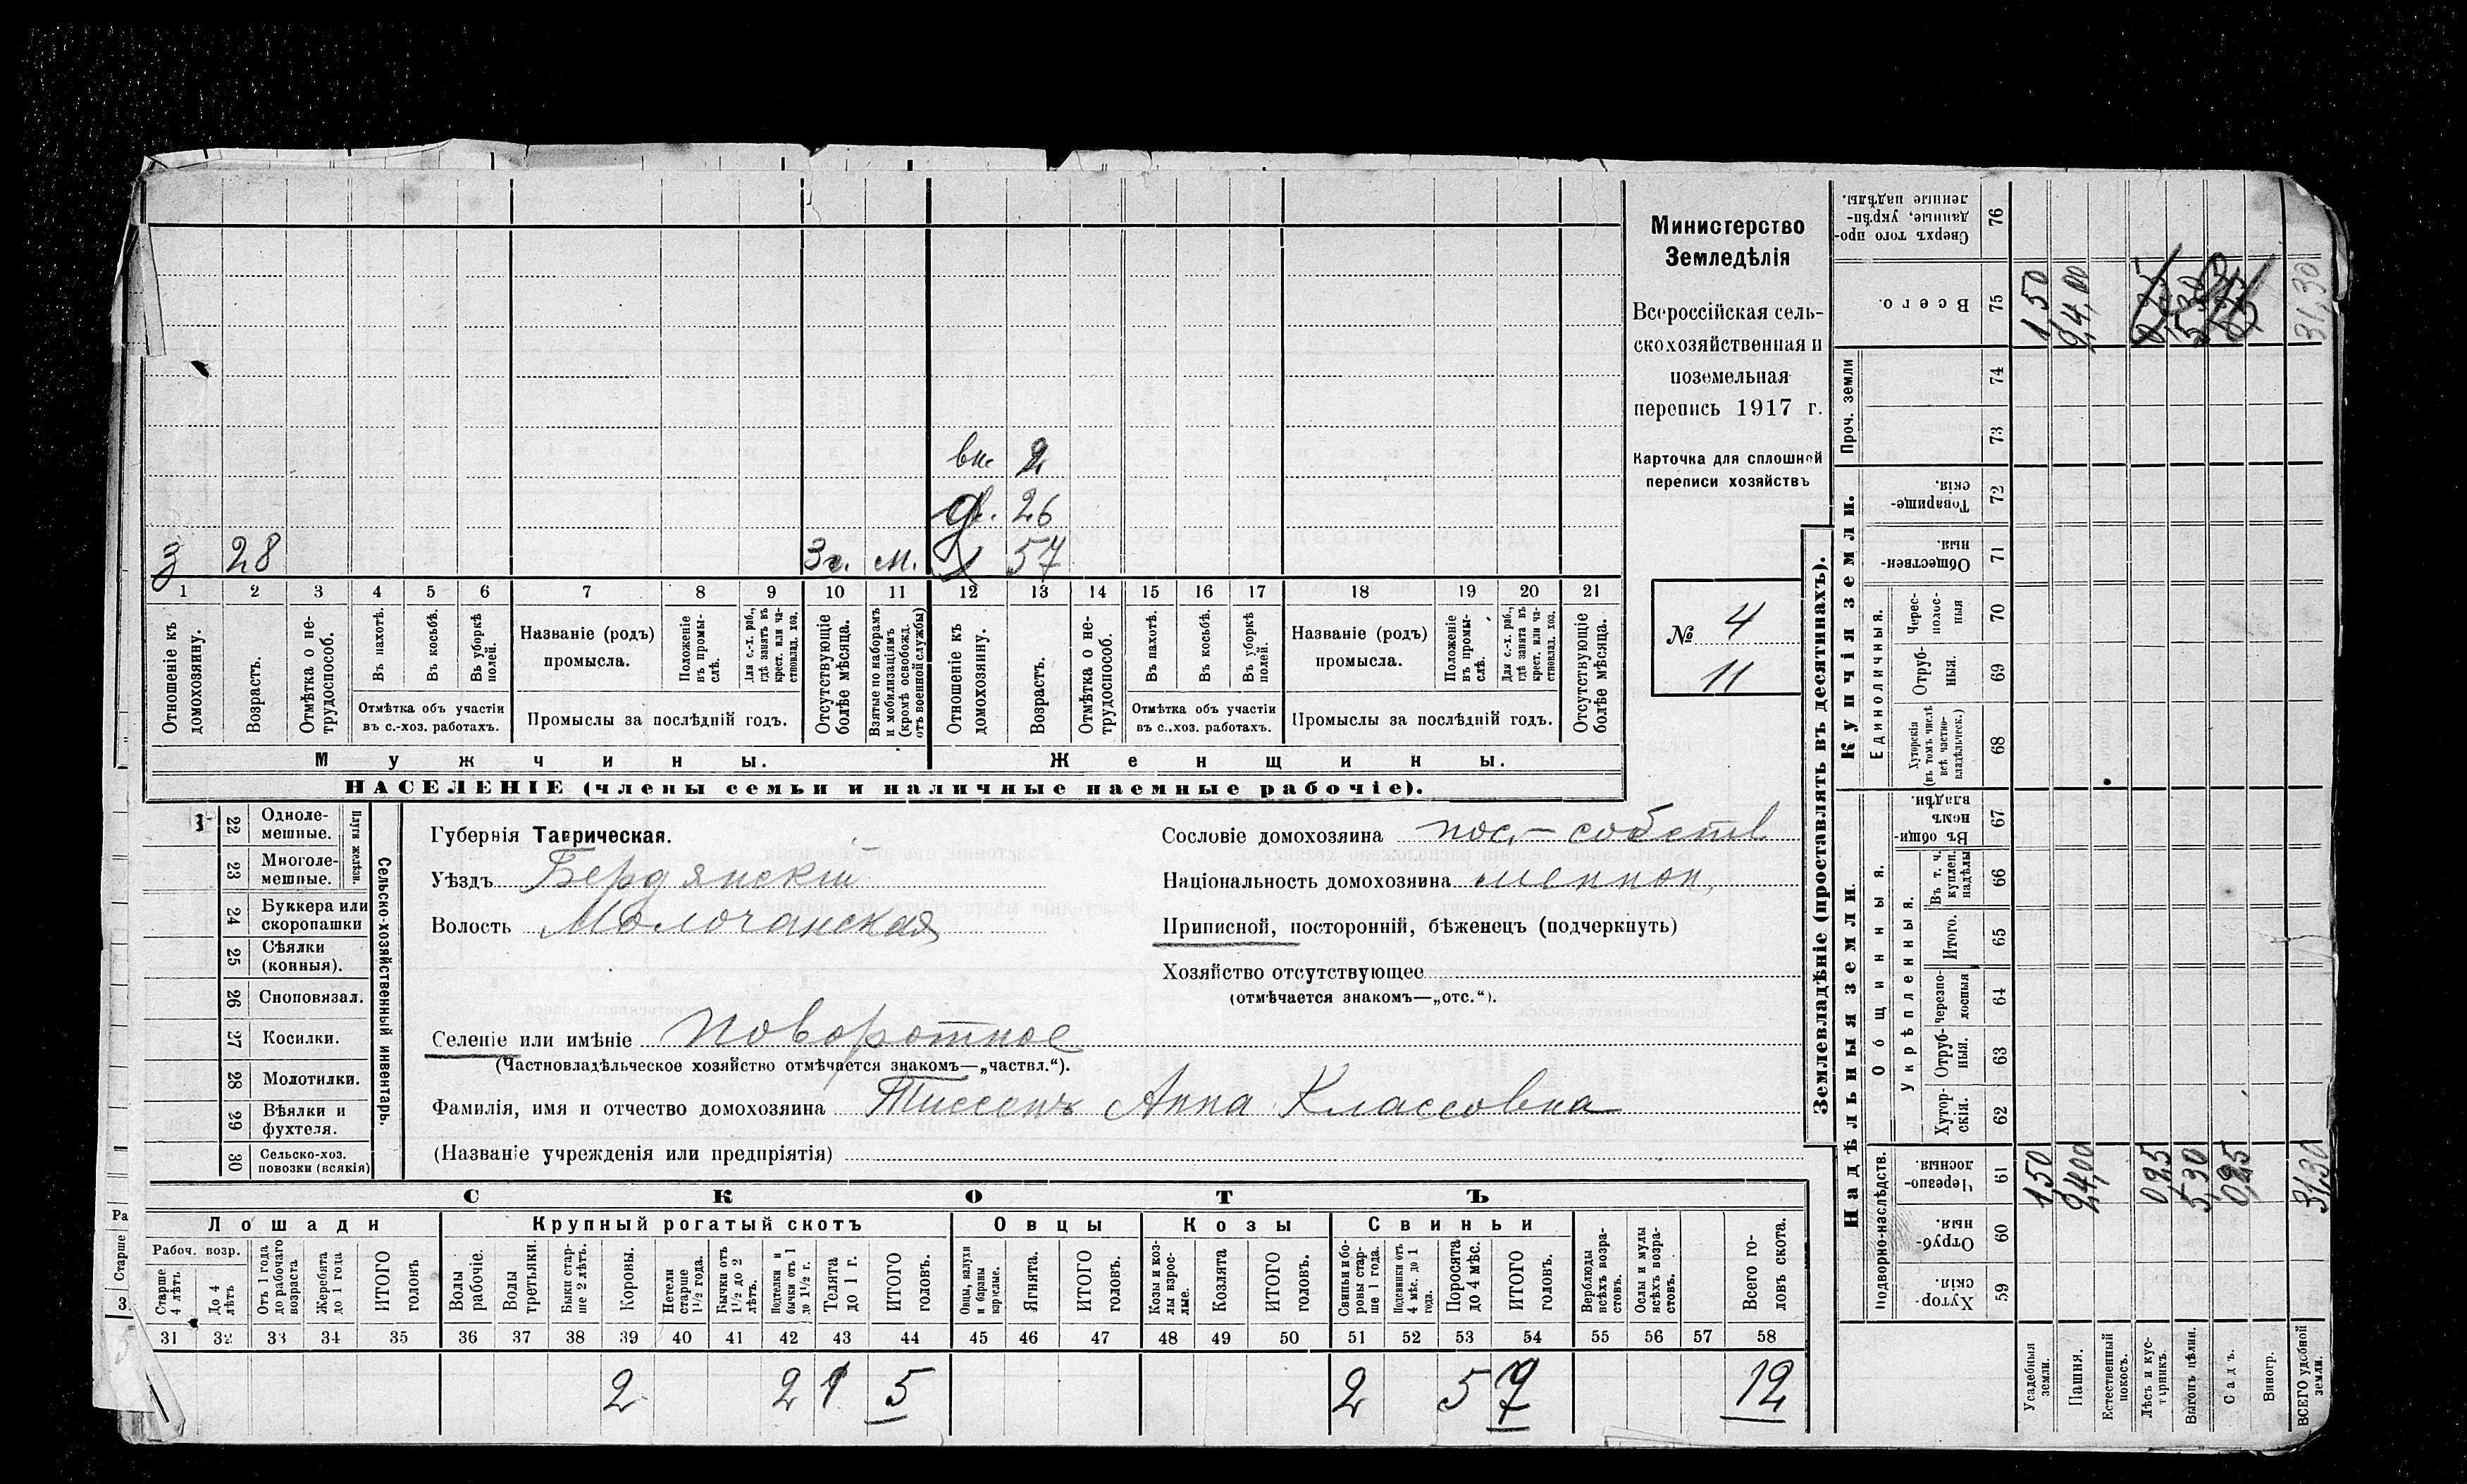 Министерство
Земледѣлія
Всероссійская сель-
скохозяйственная и
поземельная
перепись 1917 г.
Карточка для сплошной
переписи хозяйствъ
№ 4
11
вн. 2
26
57
з 28 3г. м.
1 2 3 4 5 6 7 8 9 10 11 12 13 14 15 16 17 18 19 20 21
Отношеніе къ домохозяину.
Возрастъ.
Отмѣтка о не-трудоспособ.
Въ пахотѣ.
Въ косьбѣ.
Въ уборкѣ полей.
Отмѣтка объ участіи
въ с.-хоз. работахъ.
Названіе (родъ)
промысла.
Положеніе въ промы-слѣ.
Для с.-х. раб., гдѣ занятъ въ крест. или ча-стновлад. хоз.
Промыслы за послѣдній годъ.
Отсутствующіе болѣе мѣсяца.
Взятые по наборамъ и мобилизаціямъ (кромѣ освобожд. отъ военной службы)
Отношеніе къ домохозяину.
Возрастъ.
Отмѣтка о не-трудоспособ.
Въ пахотѣ.
Въ косьбѣ.
Въ уборкѣ полей.
Отмѣтка объ участіи
въ с.-хоз. работахъ.
Названіе (родъ)
промысла.
Положеніе въ промы-слѣ.
Для с.-х. раб., гдѣ занята въ крест. или ча-стновлад. хоз.
Промыслы за послѣдній годъ.
Отсутствующіе болѣе мѣсяца.
Мужчины. Женщины.
НАСЕЛЕНІЕ (члены семьи и наличные наемные рабочіе).
Сельско-хозяйственный инвентарь.
Плуги желѣзн.
22 Одноле-мешные.
23 Многоле-мешные.
24 Буккера или скоропашки
25 Сѣялки (конныя).
26 Сноповязал.
27 Косилки.
28 Молотилки.
29 Вѣялки и фухтеля.
30 Сельско-хоз. повозки (всякія)
Губернія Таврическая.
Уѣздъ Бердянскій
Волость Молочанская
Селеніе или имѣніе Поворотное
(Частновладѣльческое хозяйство отмѣчается знакомъ—„частвл.“).
Фамилія, имя и отчество домохозяина Тиссенъ Анна Классовна
(Названіе учрежденія или предпріятія)
Сословіе домохозяина пос.- собств
Національность домохозяина меннон,
Приписной, посторонній, бѣженецъ (подчеркнуть)
Хозяйство отсутствующее
(отмѣчается знакомъ—„отс.“).
СКОТЪ
Лошади Крупный рогатый скотъ Овцы Козы Свиньи
Рабоч. возр.
Старше 4 лѣтъ
До 4 лѣтъ
Отъ 1 года до рабочаго возраста
Жеребята до 1 года
ИТОГО головъ
Волы рабочіе.
Волы третьяки.
Быки стар-ше 2 лѣтъ.
Коровы.
Нетели старше 1½ года.
Бычки отъ 1½ до 2 лѣтъ.
Подтелки и бычки отъ 1 до 1½ г.
Телята до 1 г.
ИТОГО головъ.
Овцы, валухи и бараны взрослые.
Ягнята.
ИТОГО головъ.
Козы и коз-лы взрос-лые.
Козлята
ИТОГО головъ.
Свиньи и бо-ровы стар-ше 1 года.
Подсвинки отъ 4 мѣс. до 1 года.
Поросята до 4 мѣс.
ИТОГО головъ.
Верблюды всѣхъ возра-стовъ.
Ослы и мулы всѣхъ возра-стовъ.
Всего го-ловъ скота.
31 32 33 34 35 36 37 38 39 40 41 42 43 44 45 46 47 48 49 50 51 52 53 54 55 56 57 58
2 2 1 5 2 5 7 12
Землевладѣніе (проставлять въ десятинахъ).
Надѣльныя земли. Купчія земли.
Проч. земли
Подворно-наслѣдств.
Общинныя.
Укрѣпленныя.
Единоличныя.
Сверхъ того про-данные, укрѣп-ленные надѣлы. 76
Всего. 75
74
73
Товарище-скія. 72
Обществен-ныя. 71
Черес-полос-ныя 70
Отруб-ныя. 69
Хуторскія (въ томъ числѣ всѣ частно-владѣльческ.) 68
Въ общин-номъ владѣн. 67
Въ т. ч. куплен. надѣлы 66
Итого. 65
Черезпо-лосныя 64
Отруб-ныя. 63
Хутор-скія. 62
Черезпо-лосныя. 61
Отруб-ныя. 60
Хутор-скія. 59
1,50 24,00 31,30
1,50 24,00 0,25 5,30 0,25 31,30
Усадебныя земли.
Пашня.
Естественный покосъ.
Лѣсъ и кус-тарникъ.
Выгонъ цѣлин.
Садъ.
Виногр.
ВСЕГО удобной земли.
Ра
Старше
3